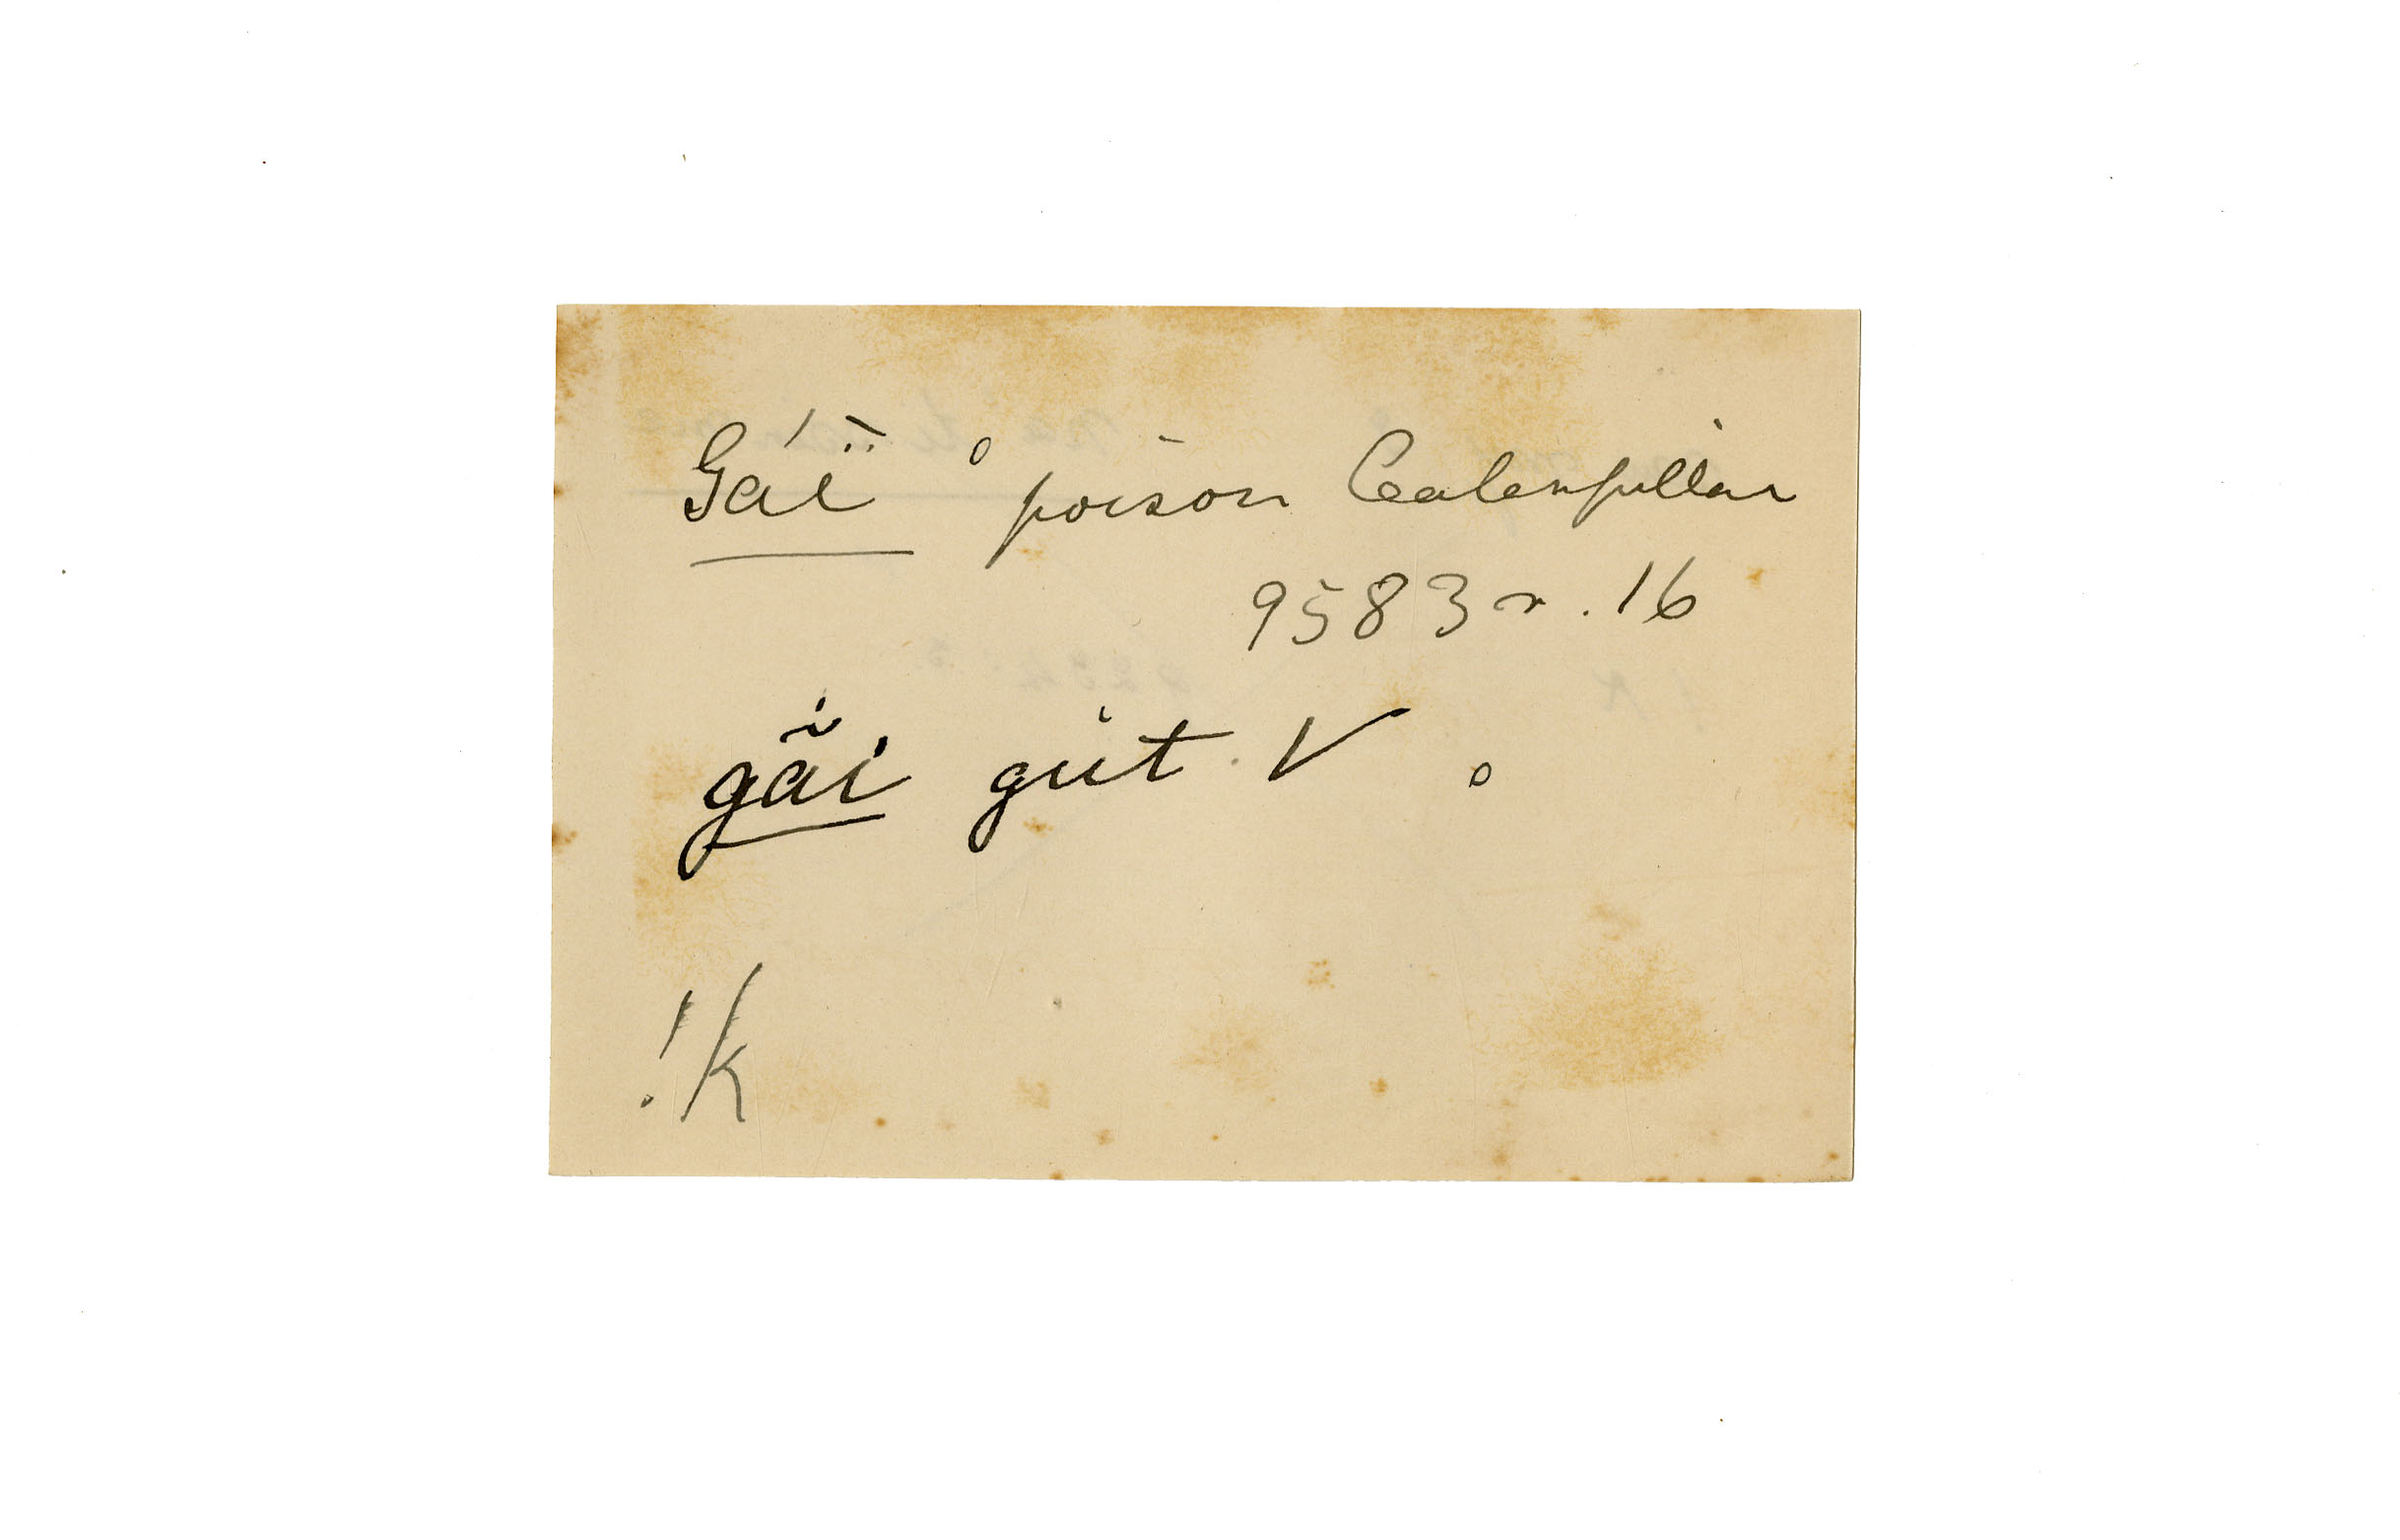 Gáï ° poison Caterpillar
9583 r. 16
gãi güt. V °
!K